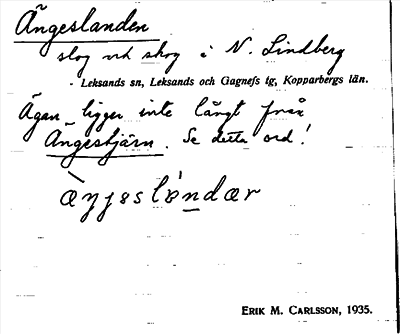 Ängeslanden
slog och skog i N. Lindberg
- Leksands sn, Leksands och Gagnefs tg, Kopparbergs län.
Ägan ligger inte långt från
Ängestjärn. Se detta ord!
ERIK M. CARLSSON, 1935.